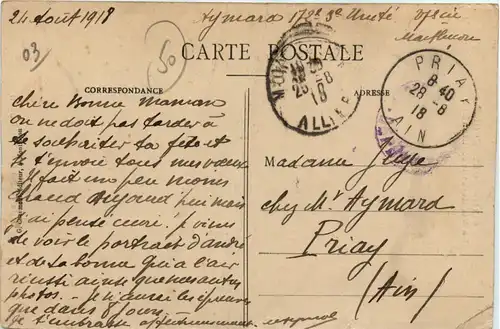 24 Août 1918
Aymard 178e 3e Unité
CARTE POSTALE
CORRESPONDANCE
ADRESSE
03
50
ALLIER
28-8
18
PRIAY
8 40
28-8
18
AIN
Chère Bonne Maman
on ne doit pas tarder à
te souhaiter ta fête et
je t'envoie tous mes voeux
Il fait un peu moins
chaud aujourd'hui mais
j'ai pensé cuire. Je viens
de voir le portrait d'André
et de sa bonne qui a l'air
réussi ainsi que nos autres
photos. - Je n'aurai les épreuves
que dans 8 jours.
Je t'embrasse affectueusement.
Madame
chez Mr Aymard
Priay
(Ain)